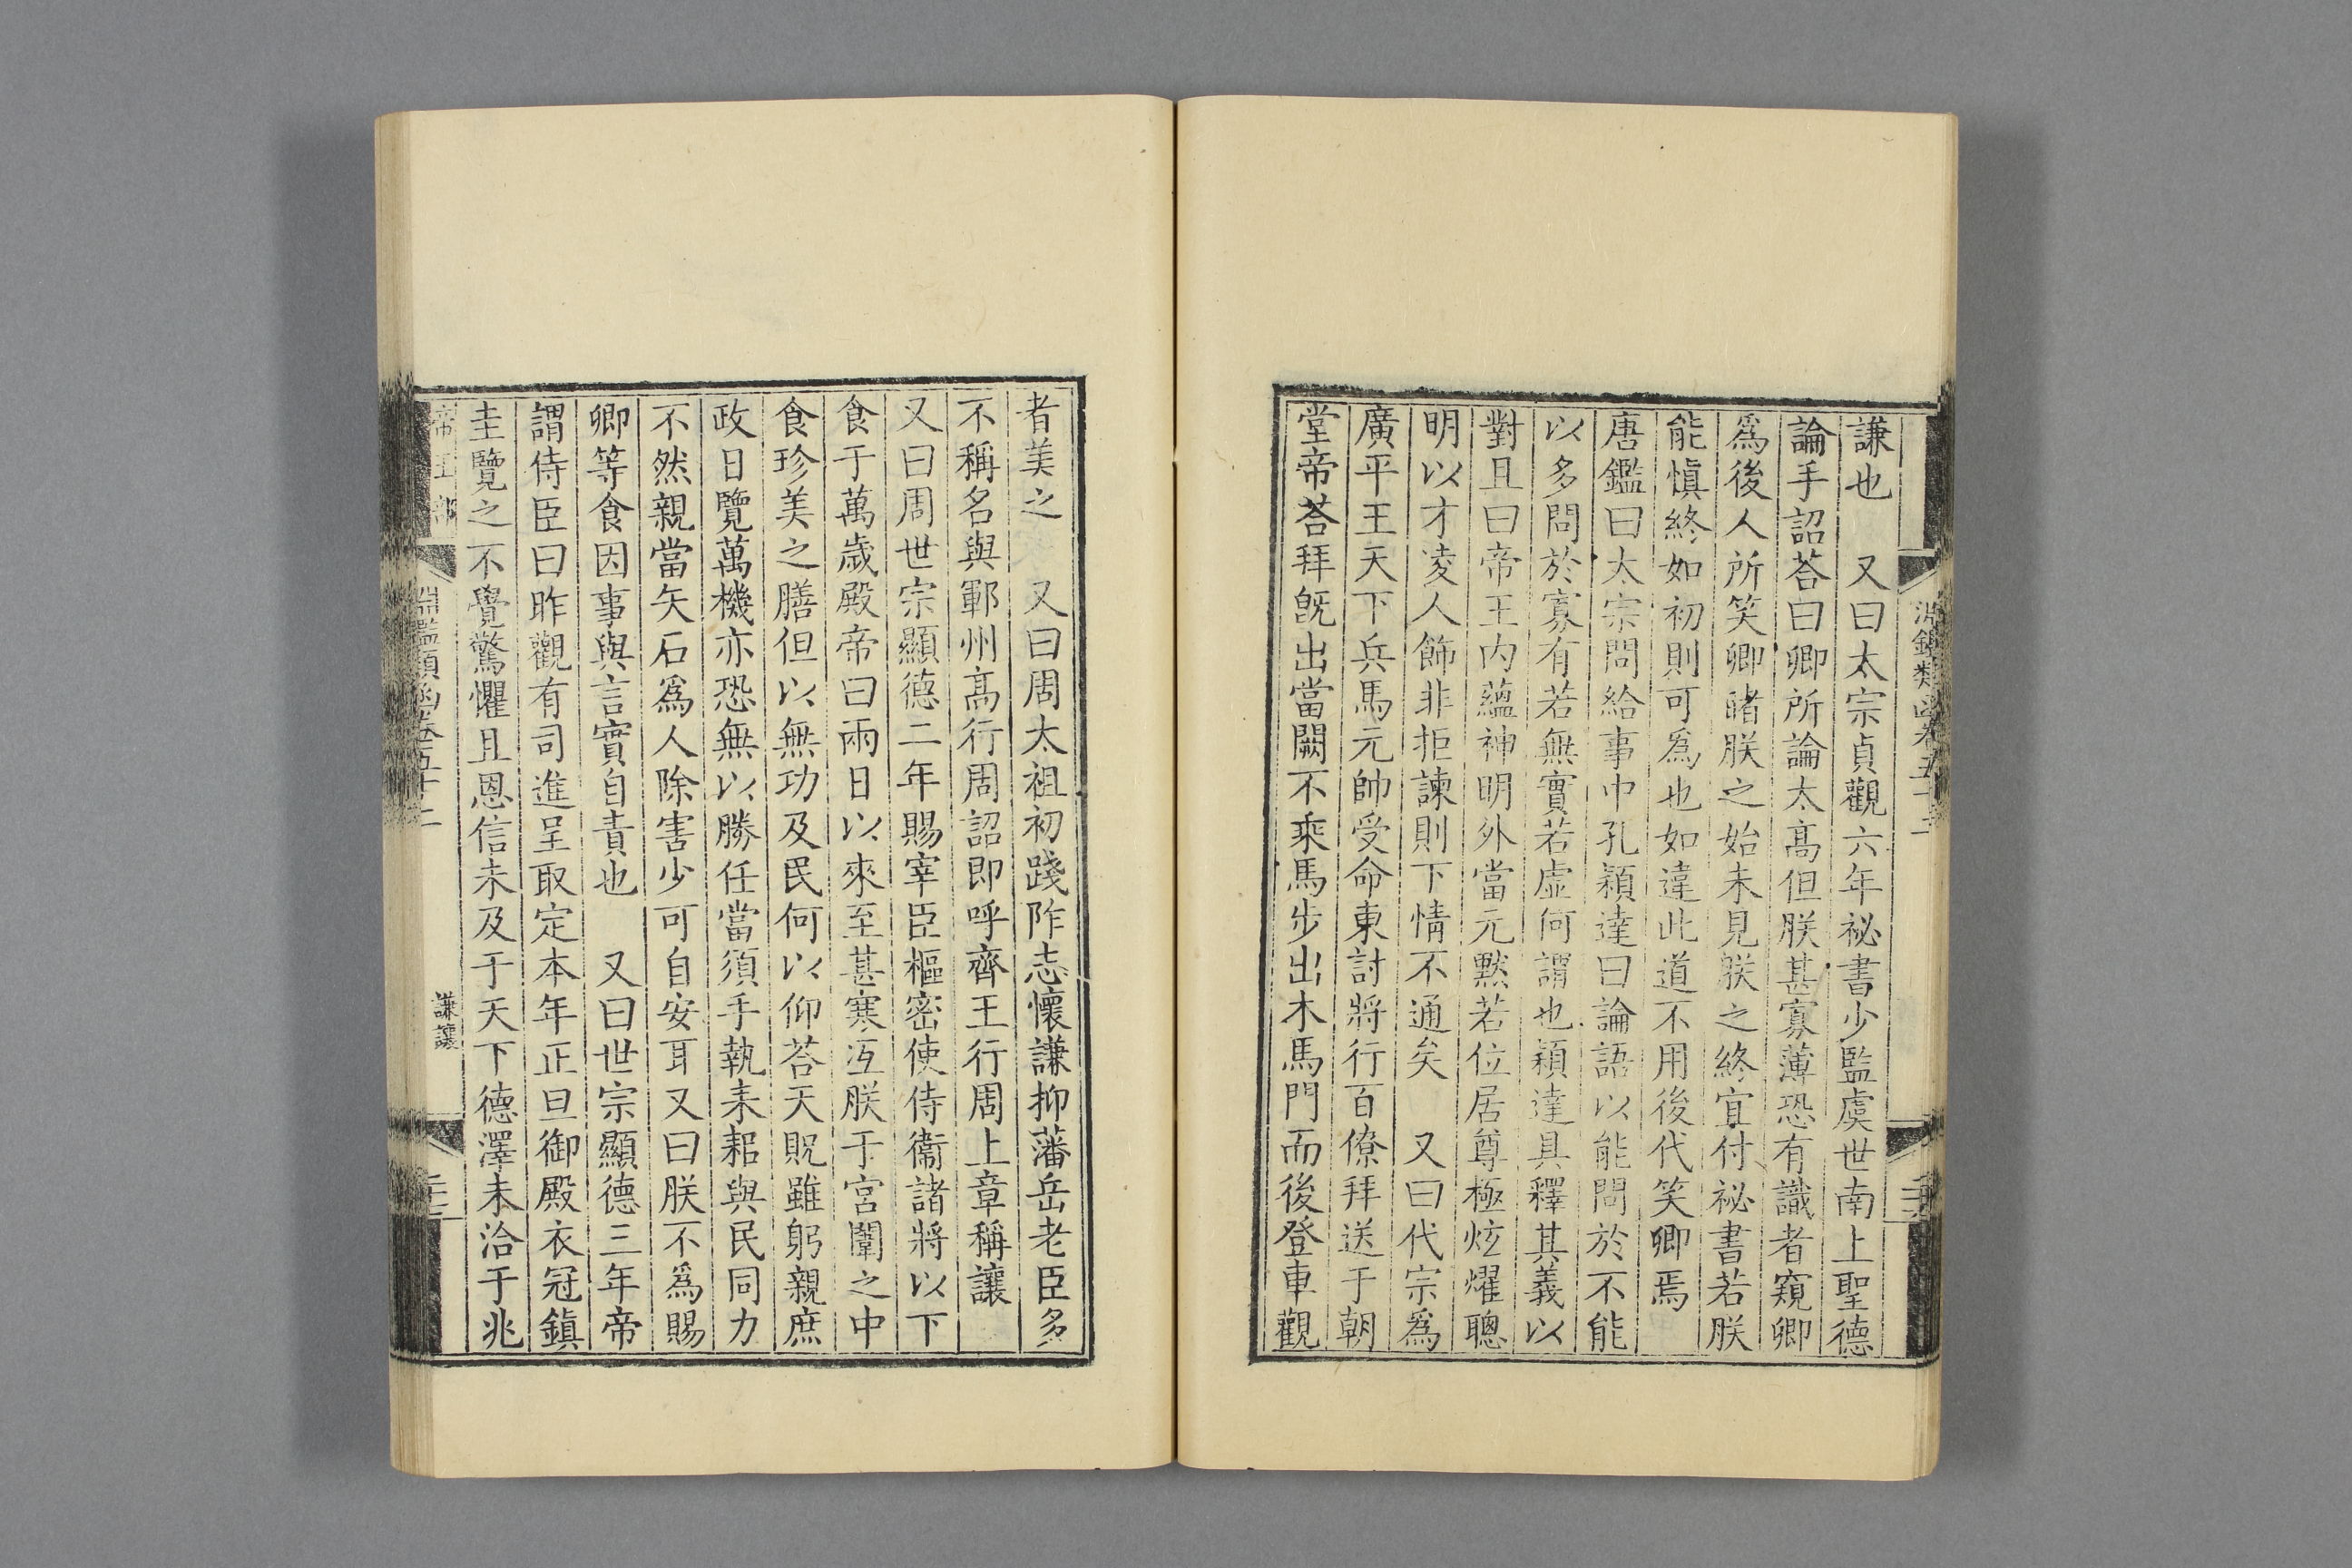 謙也　又曰太宗貞觀六年祕書少監虞世南上聖德
論手詔荅曰卿所論太高但朕甚寡薄恐有識者窺卿
爲後人所笑卿睹朕之始未見朕之終宜付祕書若朕
能愼終如初則可爲也如違此道不用後代笑卿焉
唐鑑曰太宗問給事中孔穎達曰論語以能問於不能
以多問於寡有若無實若虛何謂也穎達具釋其義以
對且曰帝王內蘊神明外當元黙若位居尊極炫燿聰
明以才凌人飾非拒諫則下情不通矣　又曰代宗爲
廣平王天下兵馬元帥受命東討將行百僚拜送于朝
堂帝荅拜旣出當闕不乘馬步出木馬門而後登車觀
者美之　又曰周太祖初踐阼志懷謙抑藩岳老臣多
不稱名與鄆州高行周詔即呼齊王行周上章稱讓
又曰周世宗顯德二年賜宰臣樞密使侍衞諸將以下
食于萬歲殿帝曰兩日以來至甚寒冱朕于宮闈之中
食珍美之膳但以無功及民何以仰荅天貺雖躬親庶
政日覽萬機亦恐無以勝任當須手執耒耜與民同力
不然親當矢石爲人除害少可自安耳又曰朕不爲賜
卿等食因事與言實自責也　又曰世宗顯德三年帝
謂侍臣曰昨觀有司進呈取定本年正旦御殿衣冠鎭
圭覽之不覺驚懼且恩信未及于天下德澤未洽于兆
帝王部　淵鑑類函卷五十二　謙讓